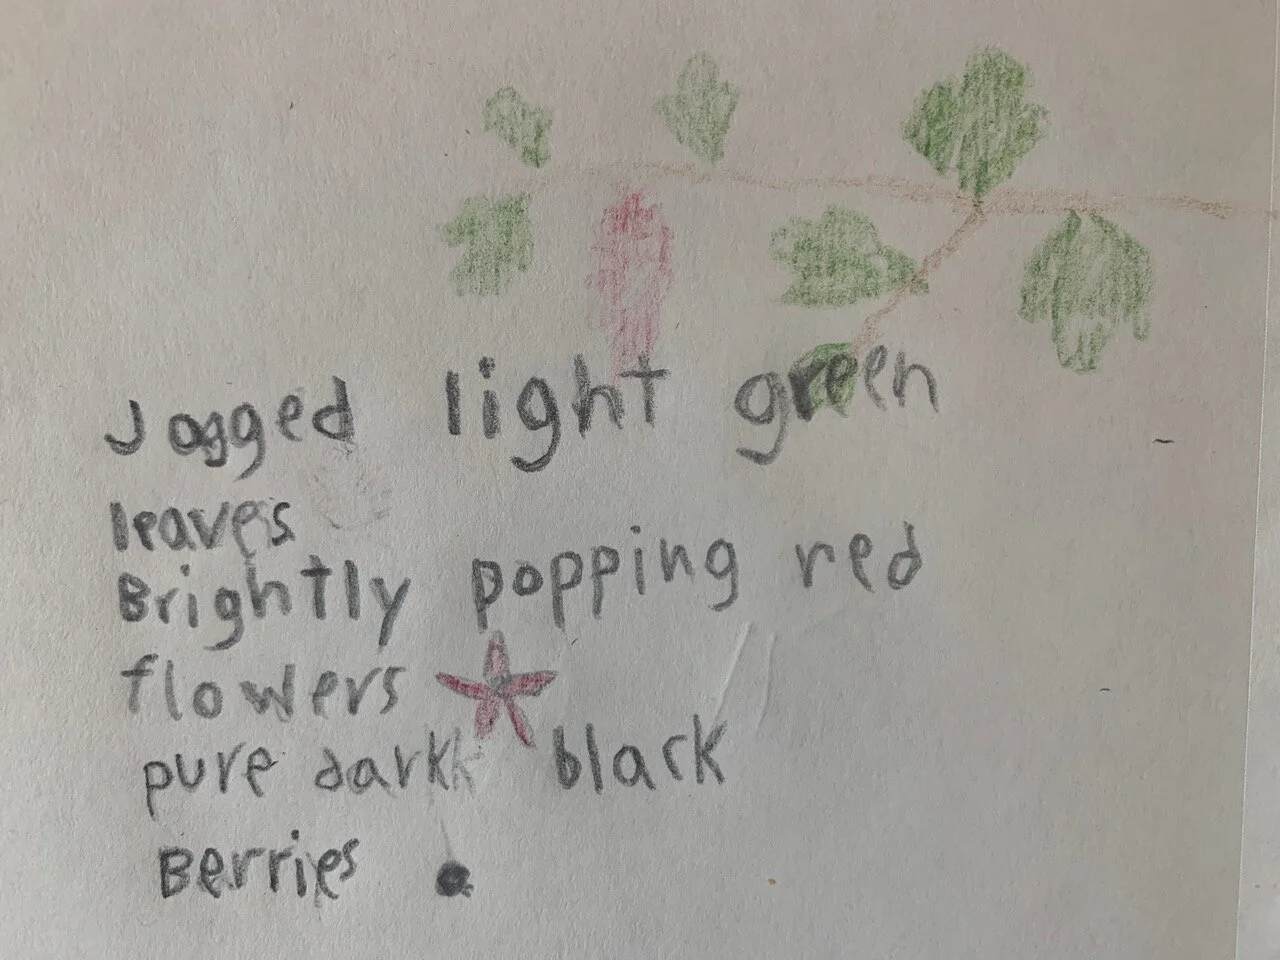 Jagged light green
leaves
Brightly popping red
flowers
pure dark black
Berries